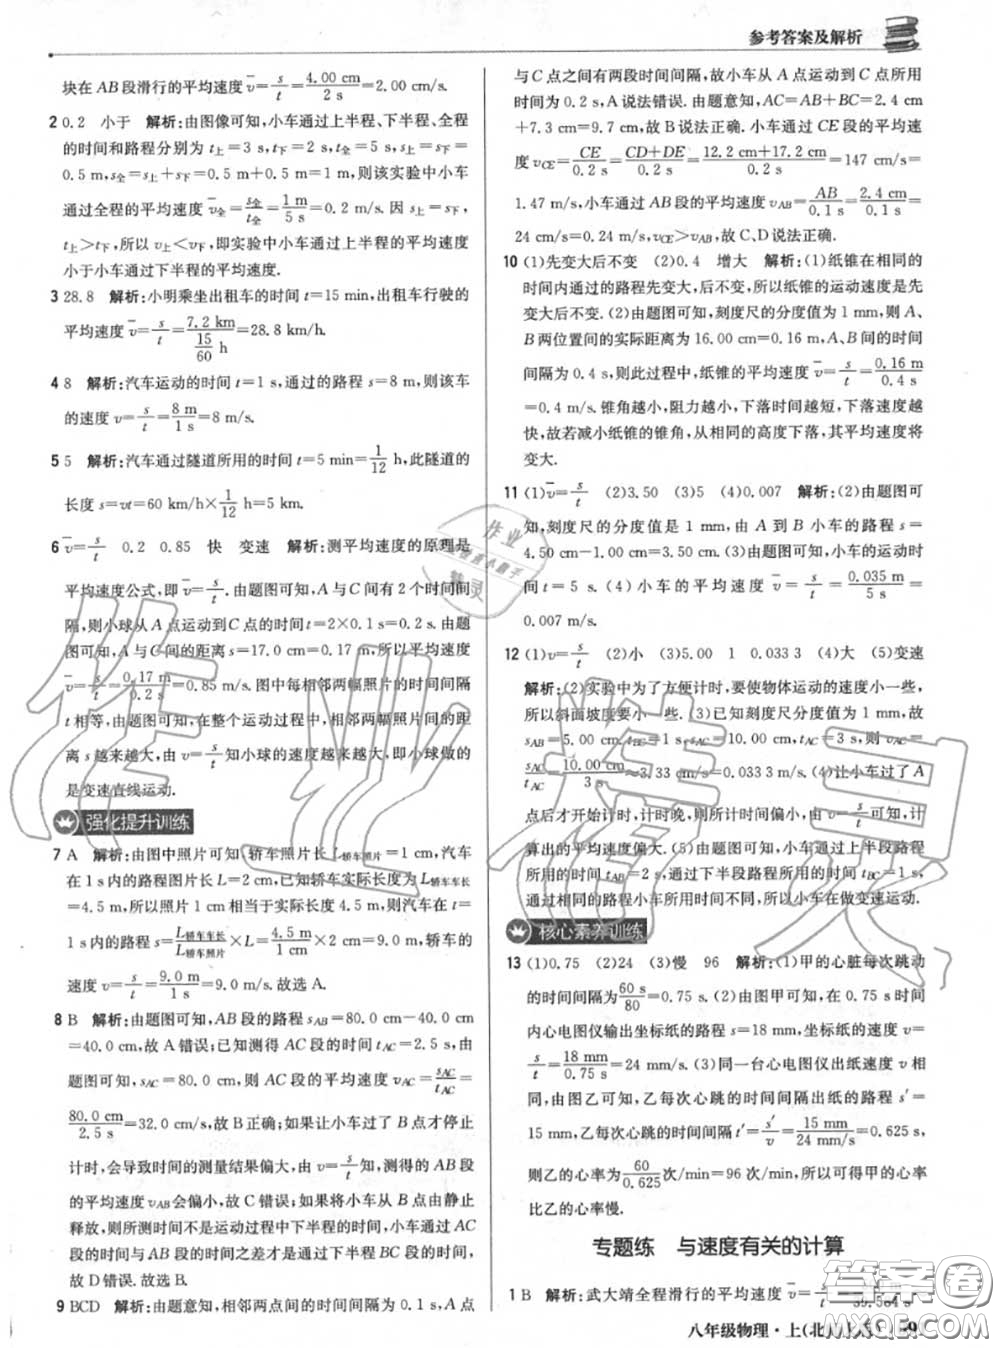 参考答案及解析
块在AB段滑行的平均速度v̄=s/t=4.00 cm/2 s=2.00 cm/s.
2 0.2 小于 解析:由图像可知,小车通过上半程、下半程、全程
的时间和路程分别为t上=3 s,t下=2 s,t全=5 s,s上=s下=
0.5 m,s全=s上+s下=0.5 m+0.5 m=1 m,则该实验中小车
通过全程的平均速度v̄全=s全/t全=1 m/5 s=0.2 m/s. 因s上=s下,
t上>t下,所以v上<v下,即实验中小车通过上半程的平均速度
小于小车通过下半程的平均速度.
3 28.8 解析:小明乘坐出租车的时间t=15 min,出租车行驶的
平均速度v̄=s/t=7.2 km/(15/60 h)=28.8 km/h.
4 8 解析:汽车运动的时间t=1 s,通过的路程s=8 m,则该车
的速度v=s/t=8 m/1 s=8 m/s.
5 5 解析:汽车通过隧道所用的时间t=5 min=1/12 h,此隧道的
长度s=vt=60 km/h×1/12 h=5 km.
6 v̄=s/t 0.2 0.85 快 变速 解析:测平均速度的原理是
平均速度公式,即v̄=s/t. 由题图可知,A与C间有2个时间间
隔,则小球从A点运动到C点的时间t=2×0.1 s=0.2 s. 由题
图可知,A与C间的距离s=17.0 cm=0.17 m,所以平均速度
v̄=s/t=0.17 m/0.2 s=0.85 m/s. 图中每相邻两幅照片的时间间隔
t相等,由题图可知,在整个运动过程中,相邻两幅照片的距
离s越来越大,由v=s/t知小球的速度越来越大,即小球做的
是变速直线运动.
强化提升训练
7 A 解析:由图中照片可知,轿车照片长L轿车照片=1 cm,汽车
在1 s内的路程图片长L=2 cm,已知轿车实际长度为L轿车车长
=4.5 m,所以照片1 cm相当于实际长度4.5 m,则汽车在t=
1 s内的路程s=L轿车车长/L轿车照片×L=4.5 m/1 cm×2 cm=9.0 m,轿车的
速度v=s/t=9.0 m/1 s=9.0 m/s. 故选A.
8 B 解析:由题图可知,AB段的路程sAB=80.0 cm-40.0 cm
=40.0 cm,故A错误;已知测得AC段的时间tAC=2.5 s,由
题图可知,sAC=80.0 cm,则AC段的平均速度vAC=sAC/tAC=
80.0 cm/2.5 s=32.0 cm/s,故B正确;如果让小车过了B点才停止
计时,会导致时间的测量结果偏大,由v=s/t知,测得的AB段
的平均速度vAB会偏小,故C错误;如果将小车从B点由静止
释放,则所测时间不是运动过程中下半程的时间,小车通过AC
段的时间与AB段的时间之差才是通过下半程BC段的时间,
故D错误. 故选B.
9 BCD 解析:由题意知,相邻两点间的时间间隔为0.1 s,A点
与C点之间有两段时间间隔,故小车从A点运动到C点所用
时间为0.2 s,A说法错误. 由题意知,AC=AB+BC=2.4 cm
+7.3 cm=9.7 cm,故B说法正确. 小车通过CE段的平均速
度vCE=CE/0.2 s=CD+DE/0.2 s=12.2 cm+17.2 cm/0.2 s=147 cm/s=
1.47 m/s,小车通过AB段的平均速度vAB=AB/0.1 s=2.4 cm/0.1 s=
24 cm/s=0.24 m/s,vCE>vAB,故C、D说法正确.
10 (1)先变大后不变 (2)0.4 增大 解析:(1)纸锥在相同的
时间内通过的路程先变大,后不变,所以纸锥的运动速度是先
变大后不变. (2)由题图可知,刻度尺的分度值为1 mm,则A、
B两位置间的实际距离为16.00 cm=0.16 m,A、B间的时间
间隔为0.4 s,则此过程中,纸锥的平均速度v̄=s/t=0.16 m/0.4 s
=0.4 m/s. 锥角越小,阻力越小,下落时间越短,下落速度越
快,故若减小纸锥的锥角,从相同的高度下落,其平均速度将
变大.
11 (1)v̄=s/t (2)3.50 (3)5 (4)0.007 解析:(2)由题图可
知,刻度尺的分度值是1 mm,由A到B小车的路程s=
4.50 cm-1.00 cm=3.50 cm. (3)由题图知,小车的运动时
间t=5 s. (4)小车的平均速度v̄=s/t=0.035 m/5 s=
0.007 m/s.
12 (1)v̄=s/t (2)小 (3)5.00 1 0.033 3 (4)大 (5)变速
解析:(2)实验中为了方便计时,要使物体运动的速度小一些,
所以斜面坡度要小一些. (3)已知刻度尺分度值为1 mm,故
sAB=5.00 cm,tBC=1 s,sAC=10.00 cm,tAC=3 s,则vAC=
sAC/tAC=10.00 cm/3 s≈3.33 cm/s=0.033 3 m/s. (4)让小车过了A
点后才开始计时,计时晚,则所计时间偏小,由v=s/t可知,计
算出的平均速度偏大. (5)由题图知,小车通过上半段路程
所用的时间tAB=2 s,通过下半段路程所用的时间tBC=1 s,
通过相同的路程小车所用时间不同,所以小车在做变速运动.
核心素养训练
13 (1)0.75 (2)24 (3)慢 96 解析:(1)甲的心脏每次跳动
的时间间隔为60 s/80=0.75 s. (2)由图甲可知,在0.75 s时间
内心电图仪输出坐标纸的路程s=18 mm,坐标纸的速度v=
s/t=18 mm/0.75 s=24 mm/s. (3)同一台心电图仪出纸速度v相
同,由图乙可知,乙每次心跳的时间间隔出纸的路程s′=
15 mm,乙每次心跳的时间间隔t′=s′/v=15 mm/24 mm/s=0.625 s,
则乙的心率为60/0.625次/min=96次/min,所以可得甲的心率
比乙的心率慢.
专题练 与速度有关的计算
1 B 解析:武大靖全程滑行的平均速度v̄=s/t=
八年级物理·上
作业
精灵
作业精灵
答案圈